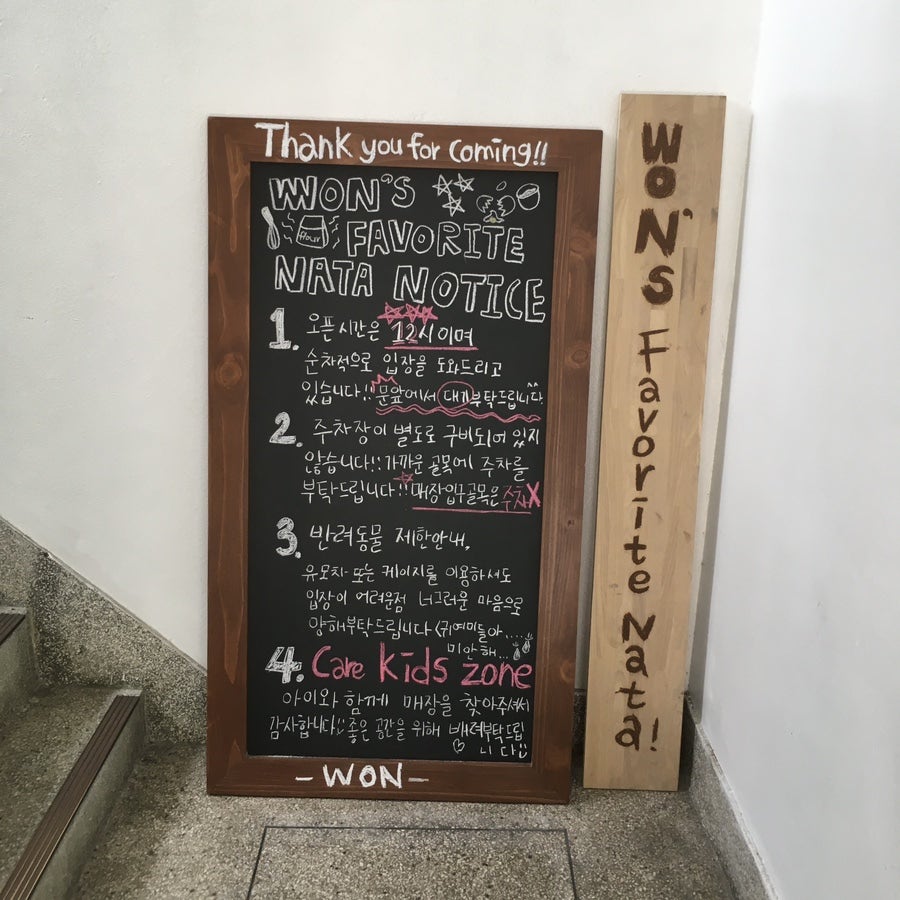 Thank you for coming!!
WON'S
flour
FAVORITE
NATA NOTICE
1. 오픈시간은 12시이며
순차적으로 입장을 도와드리고
있습니다!! 문앞에서 대기부탁드립니다.^^
2. 주차장이 별도로 구비되어 있지
않습니다!! 가까운 골목에 주차를
부탁드립니다!! 매장입구골목은 주차X
3. 반려동물 제한안내,
유모차 또는 케이지를 이용하셔도
입장이 어려운점 너그러운 마음으로
양해부탁드립니다 (귀여미들아....
미안해...
4. Care kids zone
아이와 함께 매장을 찾아주셔서
감사합니다!! 좋은 공간을 위해 배려부탁드립
니다!!
-WON-
WON'S Favorite Nata!